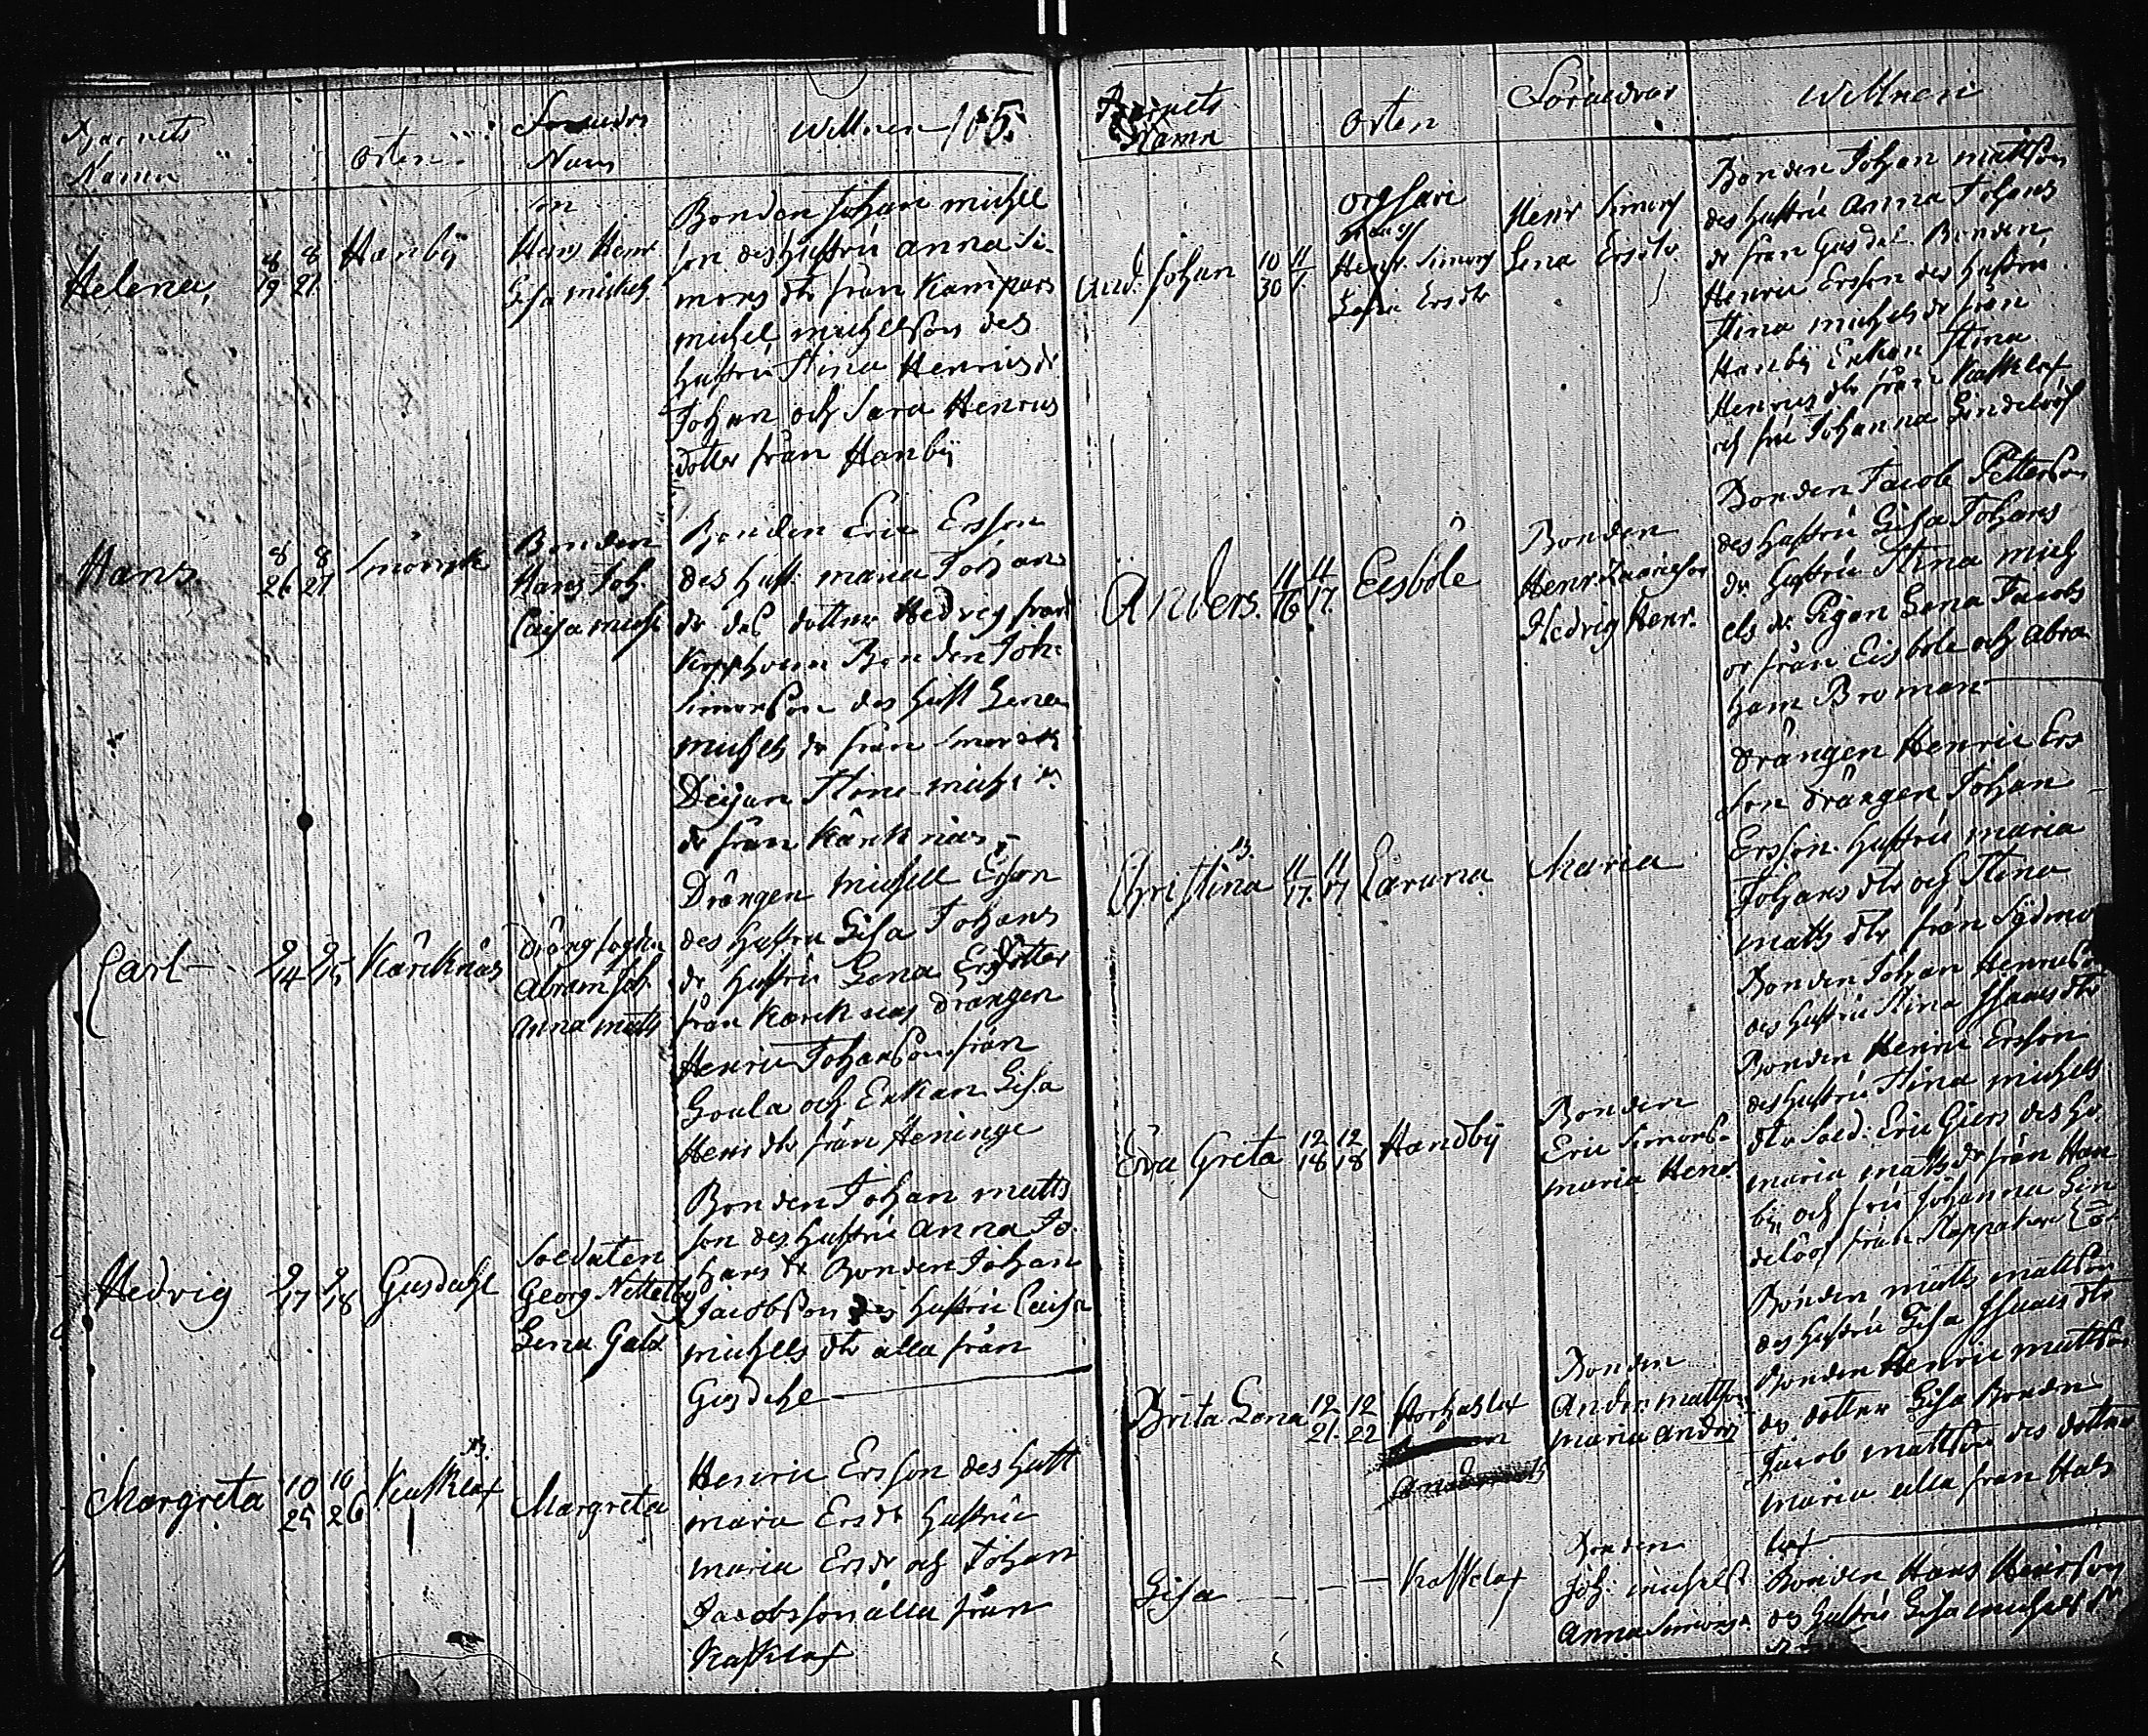 Barnets
Namn
Orten
Föräldrs
Namn
Wittnen 105.
Helena, 8/19 8/21 Hanbÿ
Hans Henr.
Lisa michels
Bonden Johan michell
son des hustru anna Si-
mons dtr från Kampars
michel michellson des
hustru Stina Henrics dr
Johan och Sara Henrics
dotter från Hanbÿ
Hans 8/26 8/27
Bonden
Hans Joh.
Caisa michl
Bonden Eric Ersson
des hust. maria Johans
dr des dotter Hedvig från
Bonden Joh:
Simonson des hust Lena
michels dr från
Pigan Stina michels
dr från Kärknäs
Carl 9/14 9/15 Kärknäs
dräng fogden
Abram Joh.
Anna matts
Drängen michell Ersson
des hustru Lisa Johans
dr hustru Lena Ersdotter
från Kärknäs drängen
Henric Johanson från
Goula och Enkan Lisa
Henr dtr från Heninge
Hedvig 9/17 9/18 Gusdahl
Soldaten
Georg
Lena Gabr
Bonden Johan matts
son des hustru Anna Jo-
hans dr Bonden Johan
Jacobson des hustru Caisa
michells dtr alla från
Gusdahl
Margreta 10/25 10/26 Kasklax
Margreta
Henric Ersson des hust
maria Ersdr hustru
maria Ersdr och Johan
Jacobsson alla från
Kasklax
Barnets
Namn
Orten
Föräldrar
Wittnen
And. Johan 10/30 11/1
Henr. Simons
Lena Ersdtr
Henr Simons
Lena Ersdtr
Bonden Johan mattson
des hustru Anna Johans
dr från Gusdal Bonden
Henric Ersson des hustru
Stina michelsdr från
Hanbÿ Enkan Stina
Henricsdtr från Kasklax
och fru Johanna Lindelöf
Anders. 11/16 11/17. Eesböle
Bonden
Hedvig Henr.
Bonden Jacob Petterson
des hustru Lisa Johans
dr hustru Stina mich
els dr Pigan Lena Jacobs
dr från Eisböle och Abra
ham Broman
Christina 11/17. 11/17 Laruna Maria
drängen Henric Ers
son drängen Johan
Ersson hustru maria
Johans dtr och Stina
matts dtr från
Eva Greta 12/18 12/18 Handbÿ
Bonden
Eric Simons.
maria Henr.
Bonden Johan Henricson
des hustru Stina Isaacs dtr
Bonden Henric Ersson
des hustru Stina michels
dtr Sold: Eric Giers des hu.
maria matts dr från Han
bÿ och fru Johanna Lin
delööf från
Brita Lena 12/21. 12/22
Bonden
Anders mattson
maria anders
Bonden matts mattson
des hustru Lisa Isaacs dtr
Bonden Henric mattson
des dotter Lisa Bonden
Jacob mattson des dotter
maria alla från Hals
lax
Lisa — — Kasklax
Bonden
Joh. michels
Anna Simons
Bonden Hans Henrson
des hustru Lisa michels dr